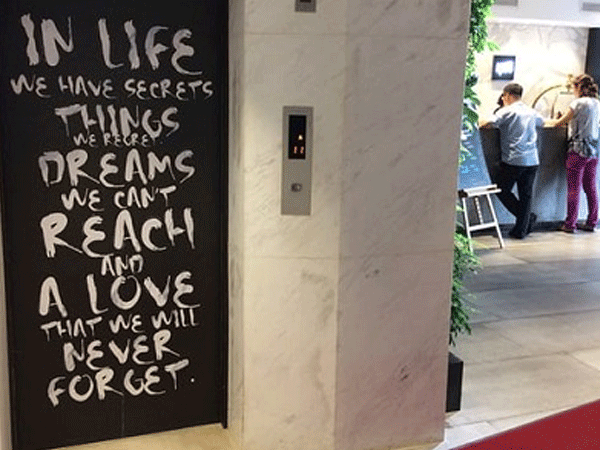 IN LIFE
WE HAVE SECRETS
THINGS
WE REGRET.
DREAMS
WE CAN'T
REACH
AND
A LOVE
THAT WE WILL
NEVER
FORGET.